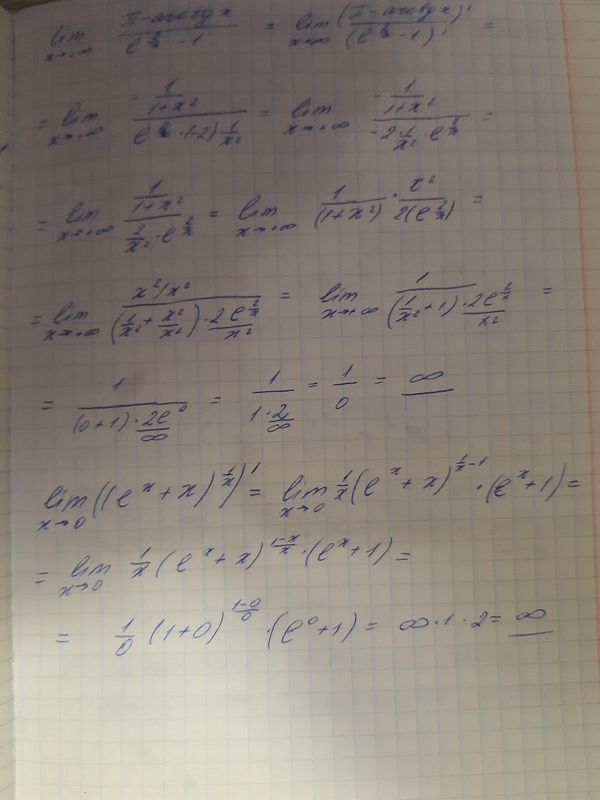 lim x→+∞ (π - arctg x)/(e^(2/x) - 1) = lim x→+∞ (π - arctg x)'/(e^(2/x) - 1)' =
= lim x→+∞ (-1/(1+x²))/(e^(2/x)·(-2)·1/x²) = lim x→+∞ (-1/(1+x²))/(-2·1/x²·e^(2/x)) =
= lim x→+∞ (1/(1+x²))/(2/x²·e^(2/x)) = lim x→+∞ 1/(1+x²) · x²/(2(e^(2/x))) =
= lim x→+∞ (x²/x²)/((1/x² + x²/x²)·2e^(2/x)/x²) = lim x→+∞ 1/((1/x²+1)·2e^(2/x)/x²) =
= 1/((0+1)·2e⁰/∞) = 1/(1·2/∞) = 1/0 = ∞
lim x→0 ((e^x + x)^(1/x))' = lim x→0 1/x (e^x + x)^(1/x-1) · (e^x + 1) =
= lim x→0 1/x (e^x + x)^((1-x)/x) · (e^x + 1) =
= 1/0 (1+0)^((1-0)/0) · (e⁰ + 1) = ∞·1·2 = ∞